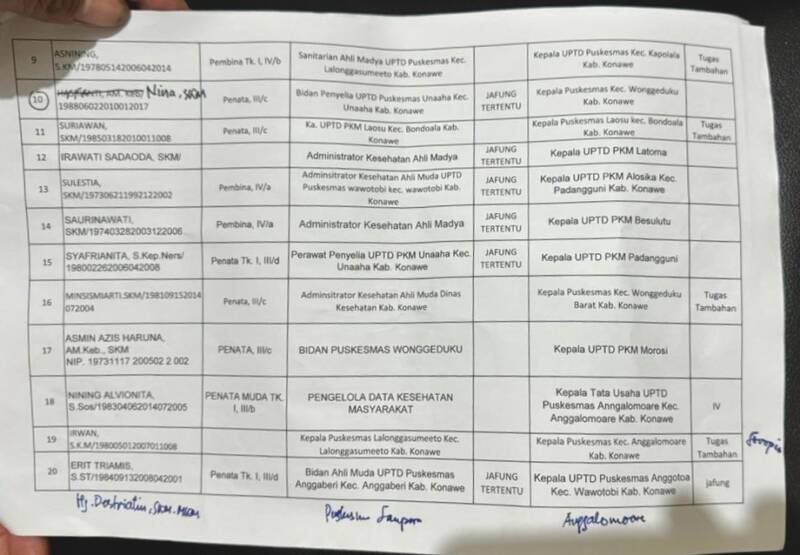 9 ASNINING, S.KM/197805142006042014 Pembina Tk. I, IV/b Sanitarian Ahli Madya UPTD Puskesmas Kec. Lalonggasumeeto Kab. Konawe Kepala UPTD Puskesmas Kec. Kapolala Kab. Konawe Tugas Tambahan
10 Nina, SKM 198806022010012017 Penata, III/c Bidan Penyelia UPTD Puskesmas Unaaha Kec. Unaaha Kab. Konawe JAFUNG TERTENTU Kepala Puskesmas Kec. Wonggeduku Kab. Konawe
11 SURIAWAN, SKM/198503182010011008 Penata, III/c Ka. UPTD PKM Laosu Kec. Bondoala Kab. Konawe Kepala Puskesmas Laosu kec. Bondoala Kab. Konawe Tugas Tambahan
12 IRAWATI SADAODA, SKM/ Administrator Kesehatan Ahli Madya JAFUNG TERTENTU Kepala UPTD PKM Latoma
13 SULESTIA, SKM/197306211992122002 Pembina, IV/a Adminsitrator Kesehatan Ahli Muda UPTD Puskesmas wawotobi kec. wawotobi Kab. Konawe JAFUNG TERTENTU Kepala UPTD PKM Alosika Kec. Padangguni Kab. Konawe
14 SAURINAWATI, SKM/197403282003122006 Pembina, IV/a Administrator Kesehatan Ahli Madya JAFUNG TERTENTU Kepala UPTD PKM Besulutu
15 SYAFRIANITA, S.Kep.Ners/ 198002262006042008 Penata Tk. I, III/d Perawat Penyelia UPTD PKM Unaaha Kec. Unaaha Kab. Konawe JAFUNG TERTENTU Kepala UPTD PKM Padangguni
16 MINSISMIARTI,SKM/198109152014 072004 Penata, III/c Adminsitrator Kesehatan Ahli Muda Dinas Kesehatan Kab. Konawe Kepala Puskesmas Kec. Wonggeduku Barat Kab. Konawe Tugas Tambahan
17 ASMIN AZIS HARUNA, AM.Keb., SKM NIP. 19731117 200502 2 002 PENATA, III/c BIDAN PUSKESMAS WONGGEDUKU Kepala UPTD PKM Morosi
18 NINING ALVIONITA, S.Sos/198304062014072005 PENATA MUDA TK. I, III/b PENGELOLA DATA KESEHATAN MASYARAKAT Kepala Tata Usaha UPTD Puskesmas Anngalomoare Kec. Anggalomoare Kab. Konawe IV
19 IRWAN, S.K.M/198005012007011008 Kepala Puskesmas Lalonggasumeeto Kec. Lalonggasumeeto Kab. Konawe Kepala Puskesmas Kec. Anggalomoare Kab. Konawe Tugas Tambahan
20 ERIT TRIAMIS, S.ST/198409132008042001 Penata Tk. I, III/d Bidan Ahli Muda UPTD Puskesmas Anggaberi Kec. Anggaberi Kab. Konawe JAFUNG TERTENTU Kepala UPTD Puskesmas Anggotoa Kec. Wawotobi Kab. Konawe jafung
Anggalomoare